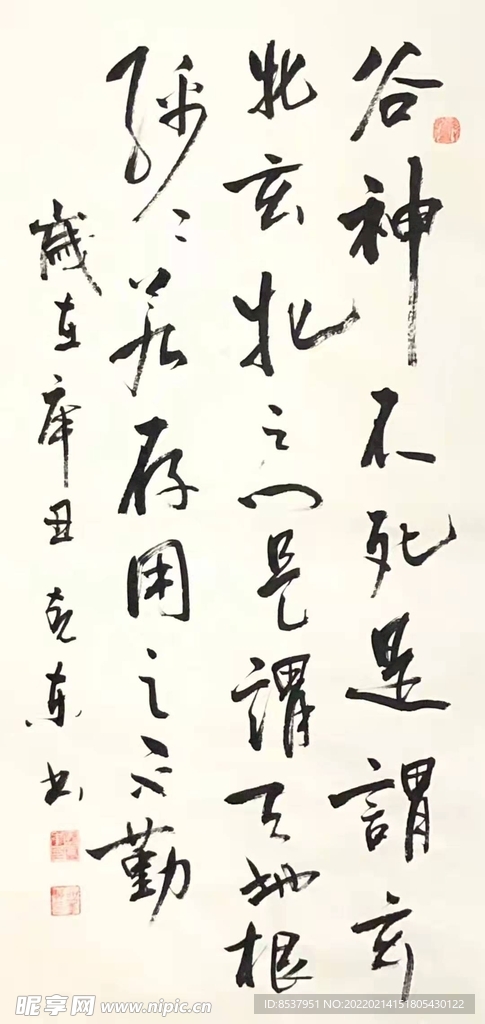 谷神不死是謂玄
牝玄牝之門是謂天地根
綿〻若存用之不勤
歲在辛丑克東书
昵享网 www.nipic.cn
ID:8537951 NO:20220214151805430122